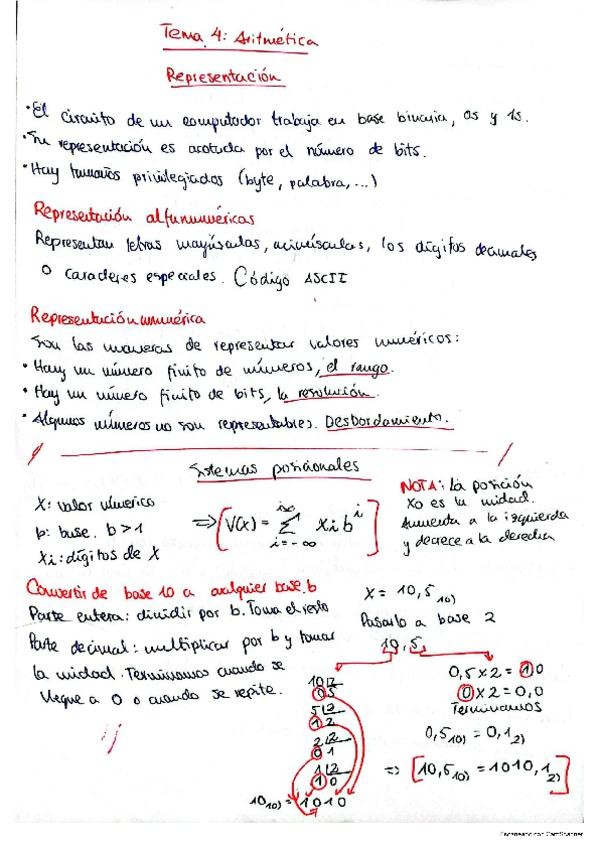 Tema 4: Aritmética
Representación
· El circuito de un computador trabaja en base binaria, 0s y 1s.
· Su representación es acotada por el número de bits.
· Hay tamaños privilegiados (byte, palabra, ...)
Representación alfanuméricas
Representan letras mayúsculas, minúsculas, los dígitos decimales
o caracteres especiales. Código ASCII
Representación numérica
Son las maneras de representar valores numéricos:
· Hay un número finito de números, el rango.
· Hay un número finito de bits, la resolución.
· Algunos números no son representables. Desbordamiento.
Sistemas posicionales
X: valor númerico
b: base. b>1
Xi: dígitos de X
=> [V(x) = ∑ i=-∞ i∞ xi b^i]
NOTA: La posición
X0 es la unidad.
Aumenta a la izquierda
y decrece a la derecha
Convertir de base 10 a cualquier base b
Parte entera: dividir por b. Toma el resto
Parte decimal: multiplicar por b y tomar
la unidad. Terminamos cuando se
llegue a 0 o cuando se repite.
X = 10,5 10)
Pasarlo a base 2
10,5
10 |2
0 5
5 |2
1 2
2 |2
0 1
1 |2
1 0
10 10) = 1010
0,5 x 2 = 1,0
0 x 2 = 0,0
Terminamos
0,5 10) = 0,1 2)
=> [10,5 10) = 1010,1 2)]
Escaneado con CamScanner